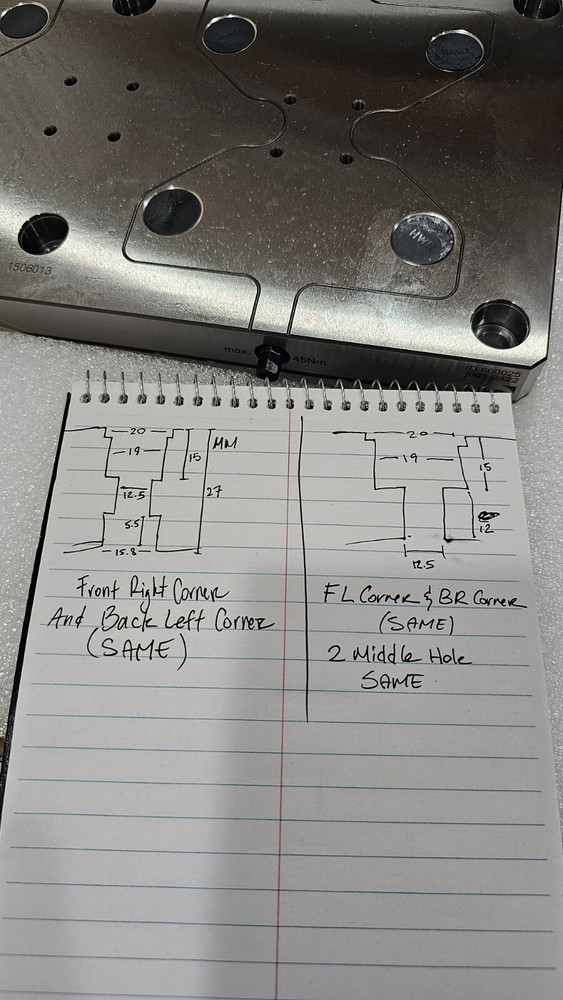 HWI
1506013
max. 45Nm
20
19
15
MM
12.5
27
5.5
15.8
Front Right Corner
And Back Left Corner
(SAME)
20
19
15
12
12.5
FL Corner & BR Corner
(SAME)
2 Middle Hole
SAME.